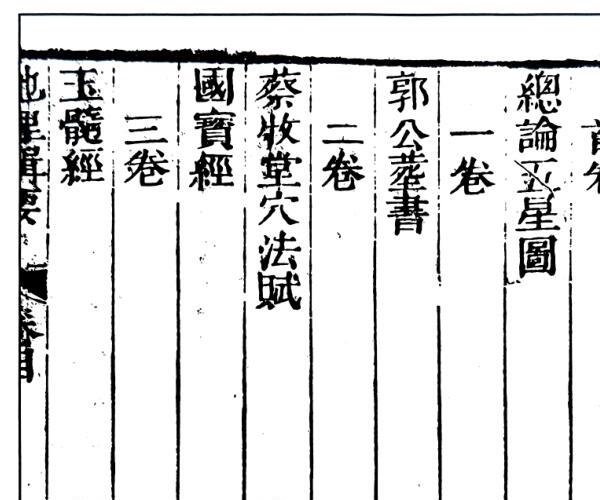 首卷
總論五星圖
一卷
郭公葬書
二卷
蔡牧堂穴法賦
國寶經
三卷
玉髓經
地理輯要
卷目